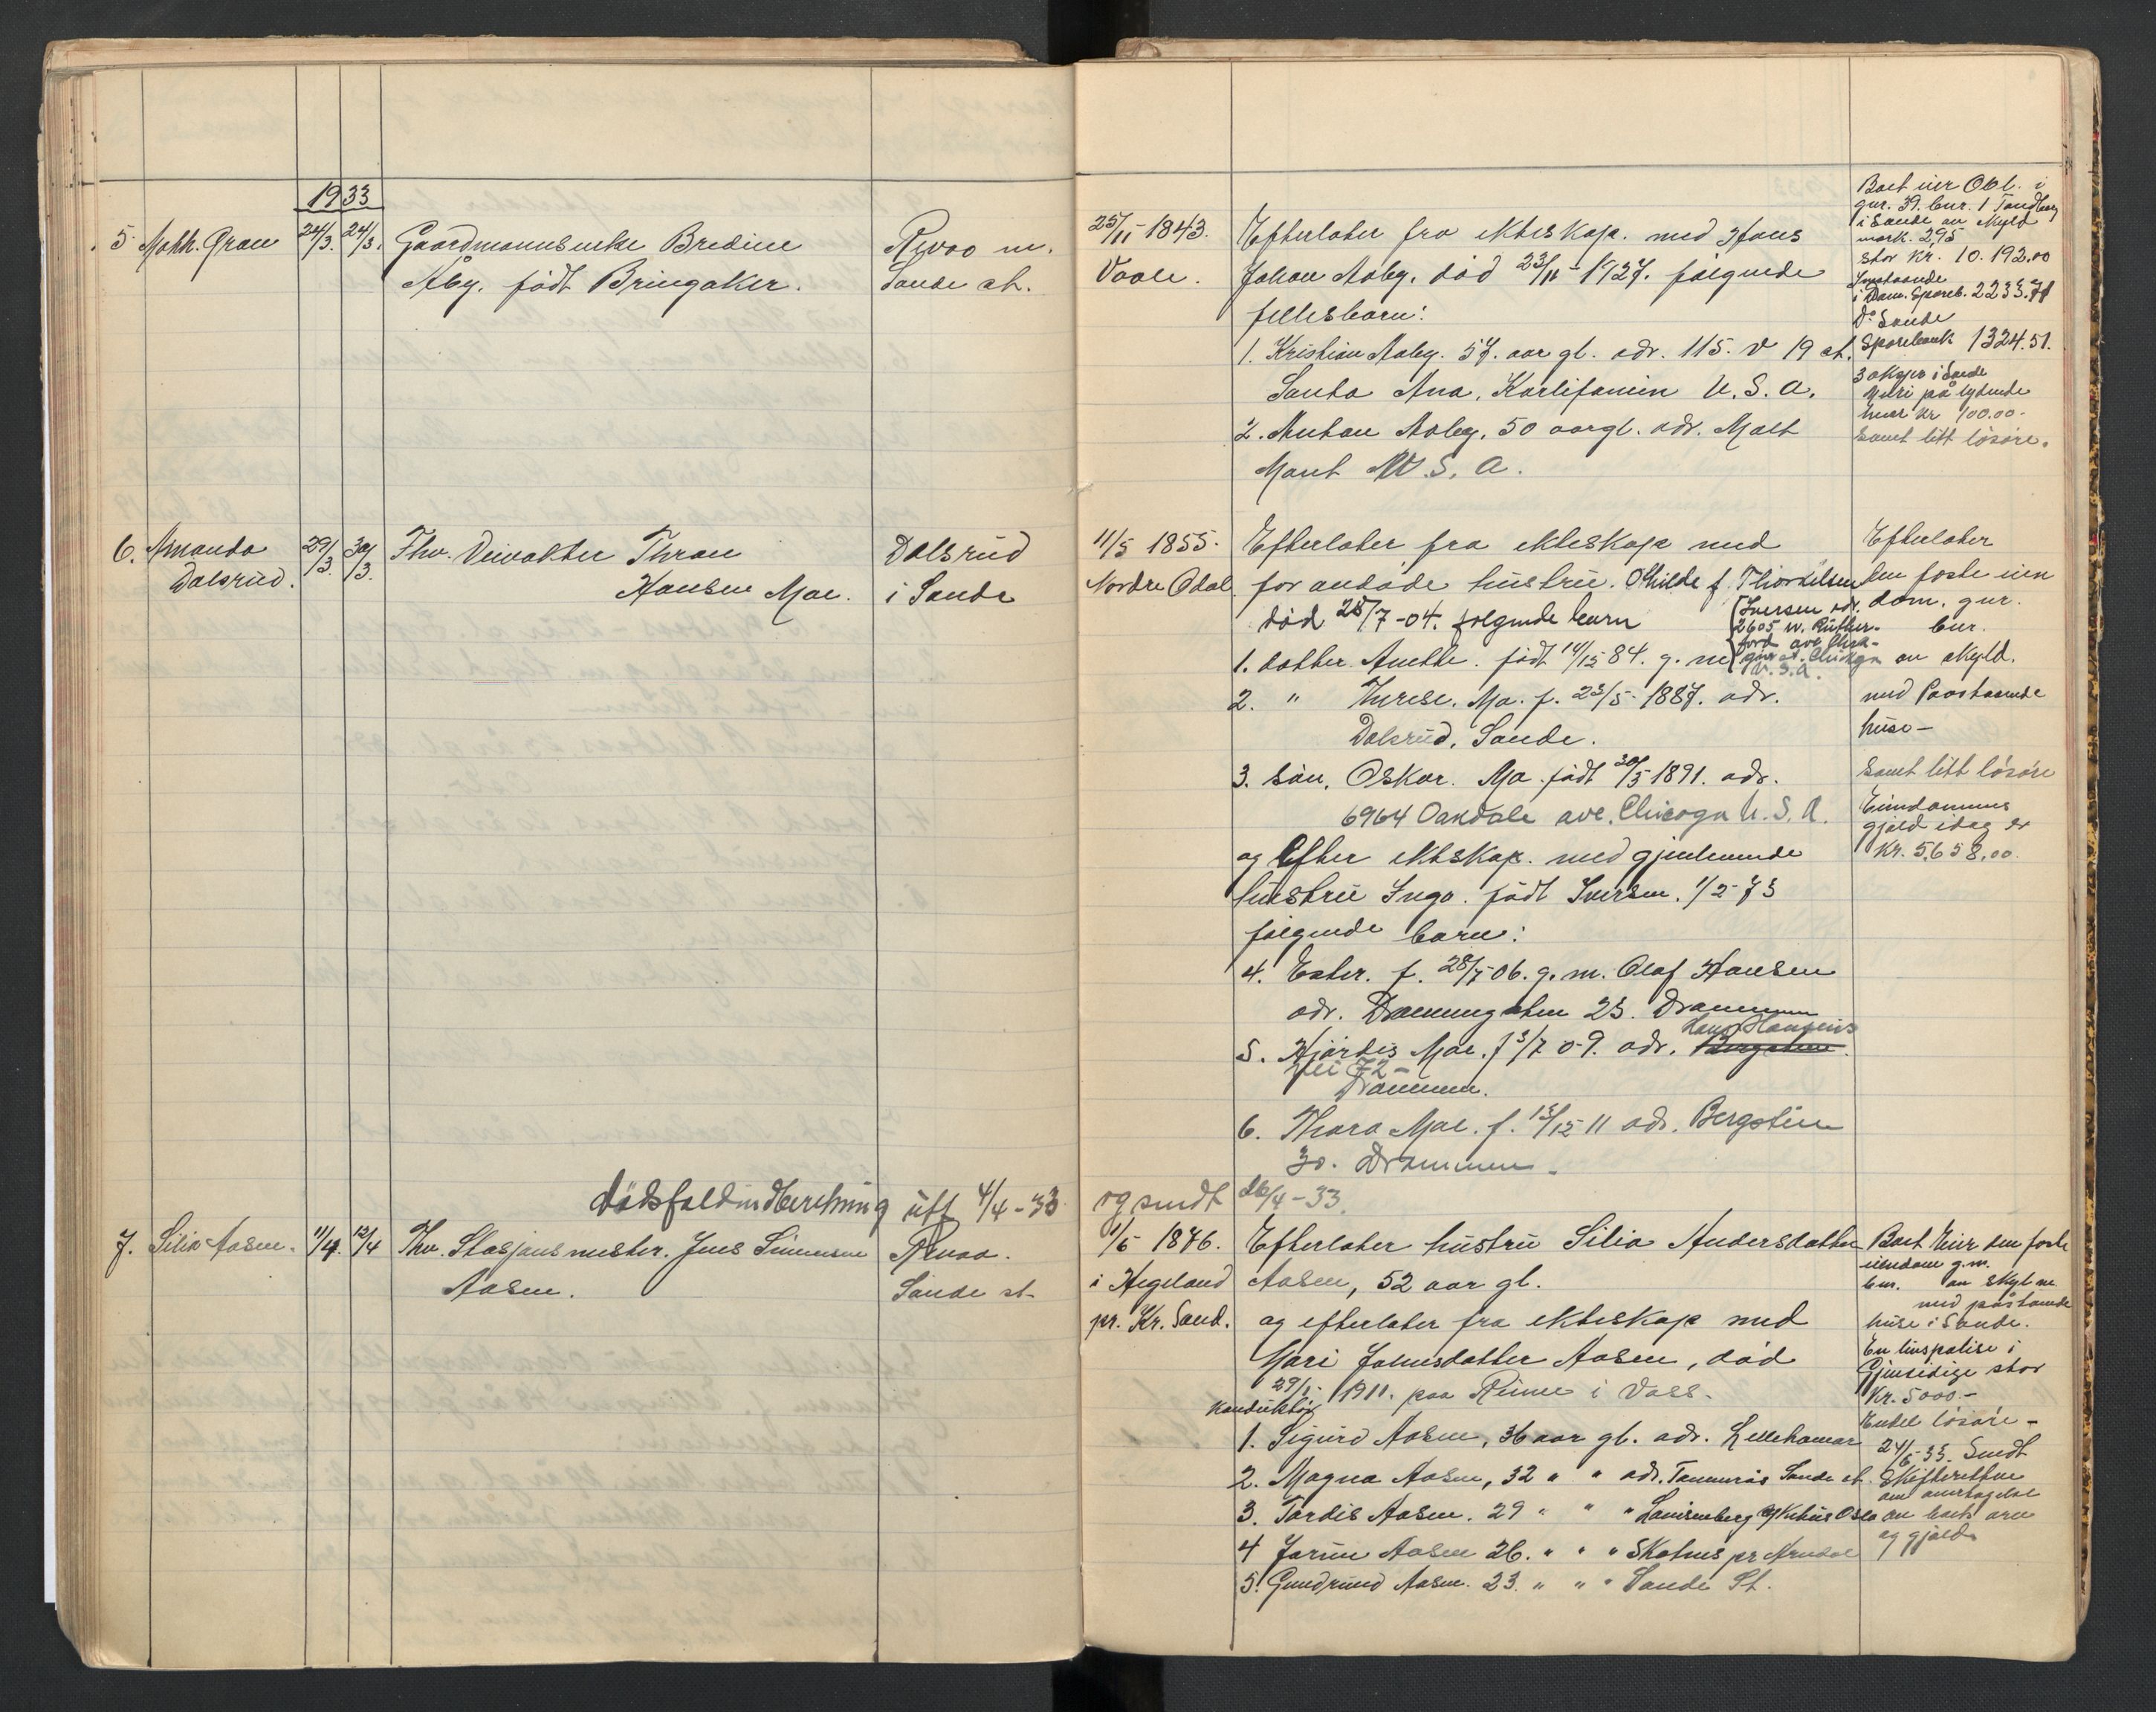 1933
5 Math. Gran 24/3. 24/3. Gaardmannsenke Bredine Revoo m.
Åby. født Bringaker. Sande st.
25/11-1843. Efterlater fra ekteskap. med Hans
Vaale. Johan Aaby. død 23/11-1927. følgende
fellesbarn:
1. Kristian Aaby. 57. aar gl. adr. 115. V 19 st.
Santa Ana, Karlifornien U. S. A.
2. Anton Aaby, 50 aargl. adr. Malt
Mont U. S. A.
Boet eier Obl. i
gnr. 39. bnr. 1 Tandberg
i Sande av skyld
mark. 2,95
stor kr. 10.192,00
Innstaaende
i Dram. Spareb. 2233.71
Do Sande
Sparebank 1324.51.
3 aksjer i Sande
Meieri på lydende
hver kr 100.00-
samt litt løsøre.
6. Amanda 29/3. 30/3. Thv. Deivakter Thran Dalsrud
Dalsrud. Hansen Moe. i Sande
11/5 1855. Efterlater fra ekteskap med
Nordre Odal for avdøde hustru. Othilde f. Thorkilsen
død 25/7-04. følgende barn
1. datter Anette. født 14/12 84. g. m. Iversen adr.
2605 W. Ruther-
ford ave Chica-
U. S. A.
2. " Therese. Mo. f. 23/5-1887. adr.
Dalsrud, Sande.
3. søn, Oskar. Mo. født 30/5 1891. adr.
6964 Oakdale ave. Chicago U. S. A.
og Efter ektskap. med gjenlevende
hustru Inga. født Iversen. 1/2-73
følgende barn:
4. Ester. f. 28/5 06. g. m. Olaf Hansen
adr. Dronninggaten 23. Drammen
Hans Hansens
5. Hjørdis Moe. f 3/7 09. adr. Bergstien.
vei 72-
Drammen.
6. Thora Moe. f. 13/12 11 adr. Bergstien
30. Drammen.
Efterlater
den faste eien
dom. gnr.
bnr.
av skyld.
med Paastaaende
huse-
samt litt løsøre
Eiendommens
gjæld idag er
Kr. 5.658,00.
dødsfaldinnberetning utf 4/4-33 og sendt 26/4-33.
7. Silia Aasen. 11/4. 12/4 Thv. Stasjonsmester. Jens Simensen Revaa.
Aasen. Sande st-
1/5 1876. Efterlater hustru Silia Andersdatter
i Hegeland Aasen, 52 aar gl.
pr. Kr. Sand. og efterlater fra ekteskap med
Mari Johnsdatter Aasen, død
29/5 1911. paa Rinne i Voss.
Konduktør
1. Sigurd Aasen, 36 aar gl. adr. Lillehamar
2. Magna Aasen, 32 " " adr. Tanumås Sande st.
3. Tordis Aasen. 29 " " " Lovisenberg sykehus Oslo
4 Jorun Aasen 26. " " " Skotnes pr Arndal
5. Gundrund Aasen. 23. " " " Sande St.
Boet Eier den faste
eiendom g.nr.
bnr. av skyl m.
med påstaaende
huse i Sande.
En livspolise i
Gjensidige stor
Kr. 5000.-
Endel løsøre-
24/6-33. Sendt
Skifteretten
om overtagelse
av boets arv
og gjæld.